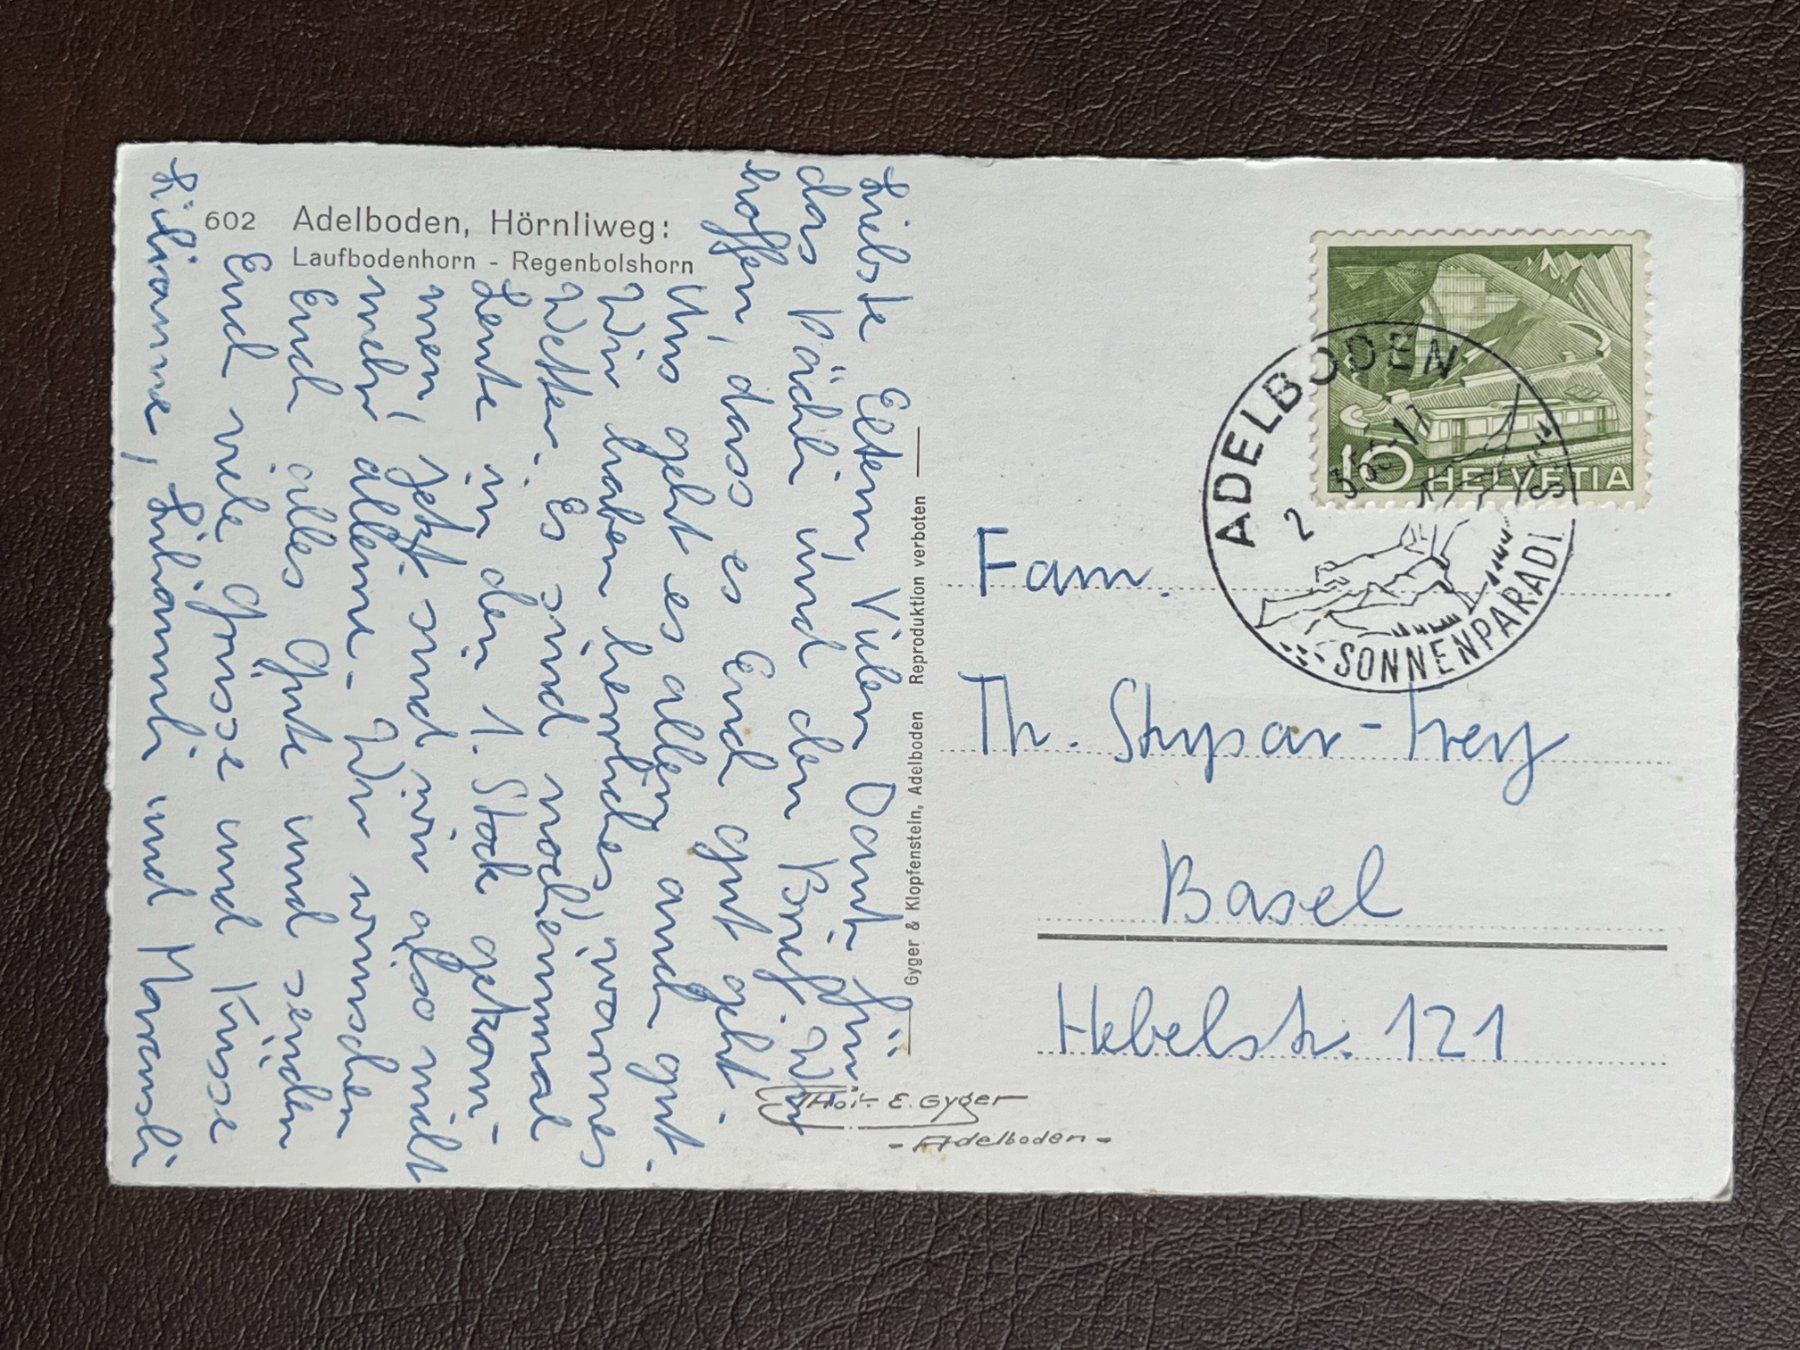 602 Adelboden, Hörnliweg:
Laufbodenhorn - Regenbolshorn
Liebste Eltern, Vielen Dank für
das Päckli und den Brief. Wir
hoffen, dass es Euch gut geht.
Uns geht es allen auch gut.
Wir haben herrliches, warmes
Wetter. Es sind noch einmal
Leute in den 1. Stock gekom-
men, jetzt sind wir also nicht
mehr alleine. Wir wünschen
Euch alles Gute und senden
Euch viele Grüsse und Küsse
Lilianne, Liliannli und
Gyger & Klopfenstein, Adelboden Reproduktion verboten
Thor E. Gyger
- Adelboden -
10 HELVETIA
ADELBODEN
SONNENPARADIES
Fam.
Th. -Frey
Basel
Hebelstr. 121